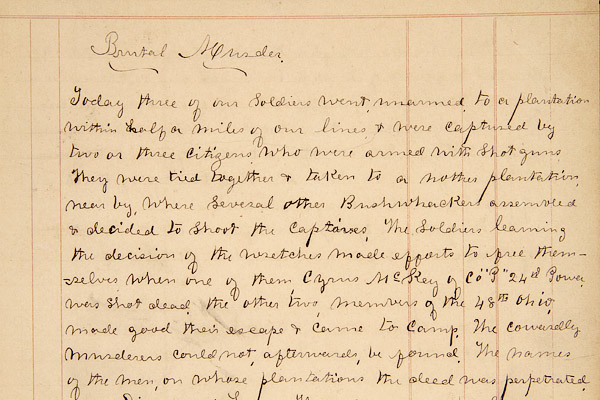 Brutal Murder.
Today three of our Soldiers went, unarmed, to a plantation
within half a miles of our lines, & were captured by
two or three citizens, who were armed with Shot guns.
They were tied together & taken to a nother plantation,
near by, where several other Bushwhackers assembled
& decided to shoot the captives. The Soldiers learning
the decision of the wretches made efforts to free them-
selves when one of them Cyrus McKey of Co "F" 24th Iowa,
was shot dead, the other two, members of the 48th Ohio,
made good their escape & came to camp. The cowardly
murderers could not, afterwards, be found. The names
of the men, on whose plantations the deed was perpetrated